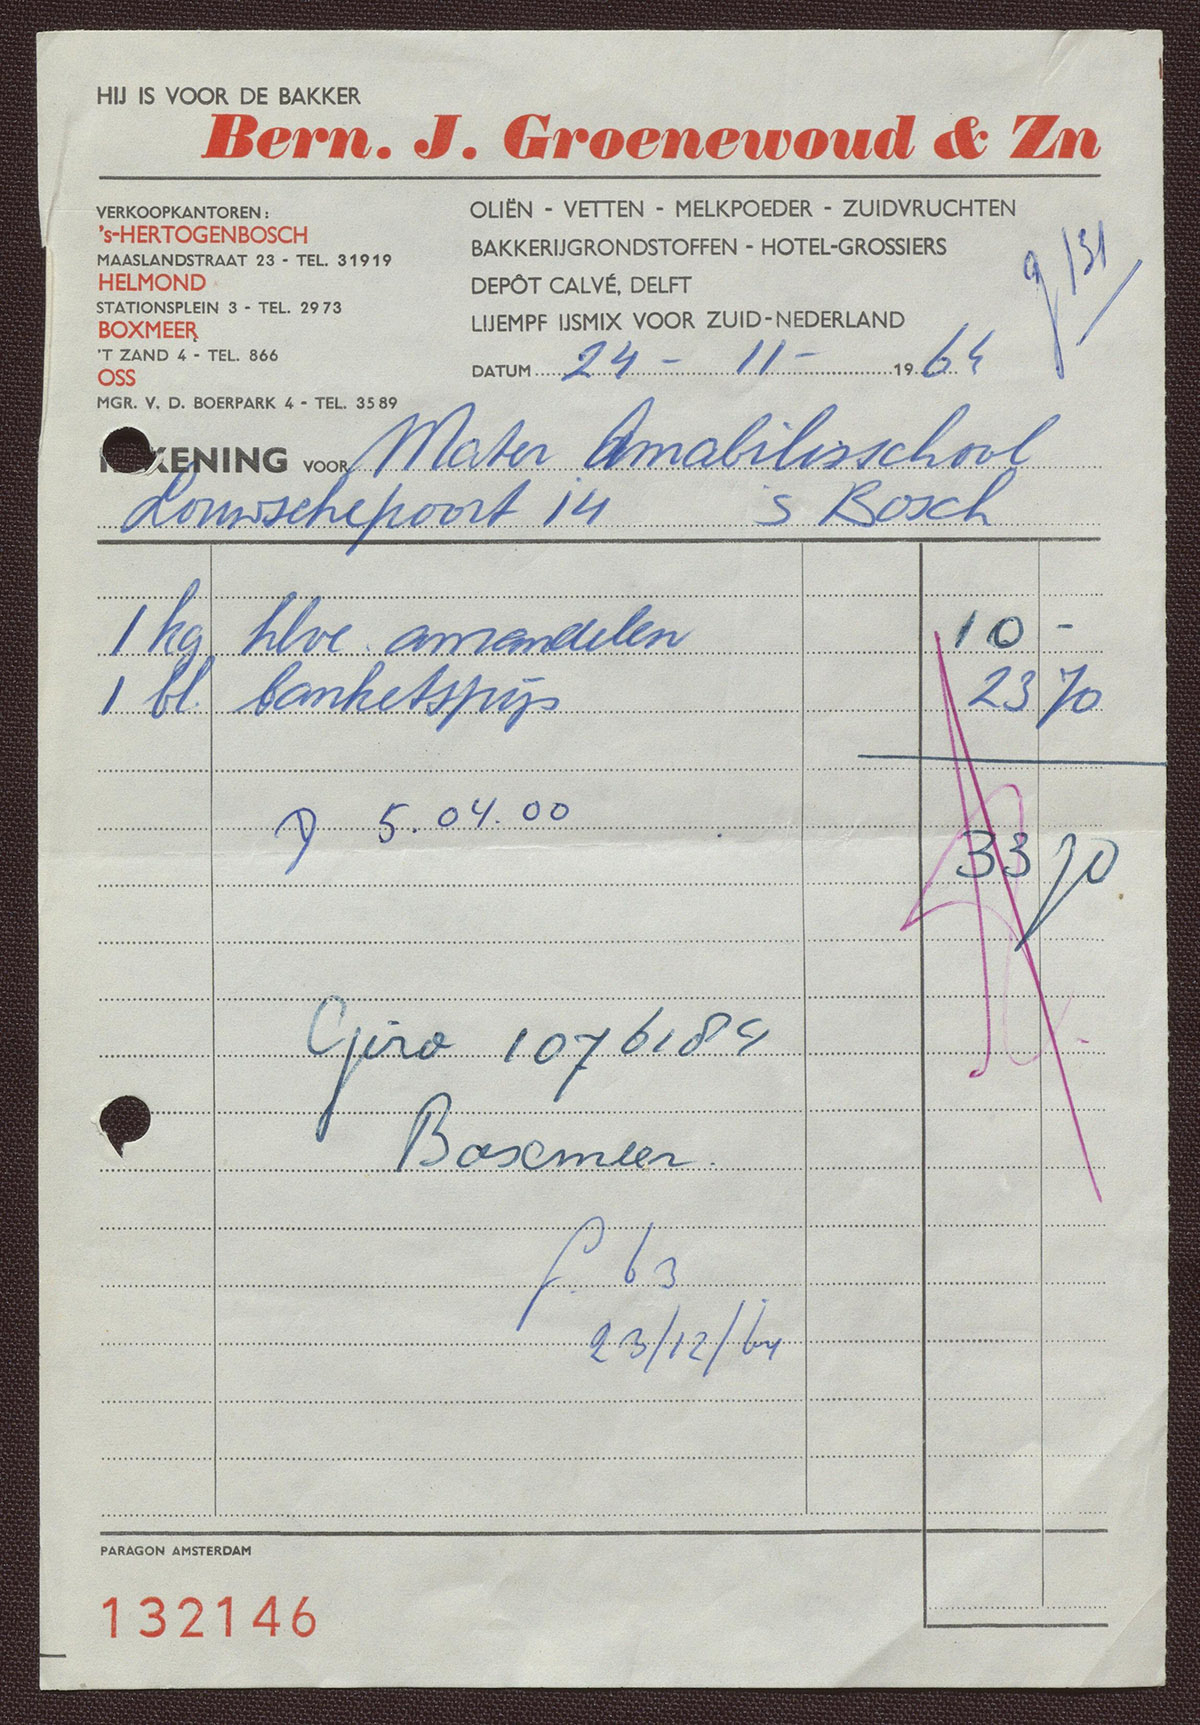 HIJ IS VOOR DE BAKKER
Bern. J. Groenewoud & Zn
VERKOOPKANTOREN:
's-HERTOGENBOSCH
MAASLANDSTRAAT 23 - TEL. 31919
HELMOND
STATIONSPLEIN 3 - TEL. 2973
BOXMEER
'T ZAND 4 - TEL. 866
OSS
MGR. V. D. BOERPARK 4 - TEL. 3589
OLIËN - VETTEN - MELKPOEDER - ZUIDVRUCHTEN
BAKKERIJGRONDSTOFFEN - HOTEL-GROSSIERS
DEPÔT CALVÉ, DELFT
LIJEMPF IJSMIX VOOR ZUID-NEDERLAND
DATUM 24 - 11 - 1964
REKENING VOOR Mater Amabilisschool
Louwschepoort 14 's Bosch
1 kg hlve amandelen 10 -
1 bl. banketspijs 23 70
5.04.00
33 70
Giro 1076184
Boxmeer.
63
23/12/64
PARAGON AMSTERDAM
132146